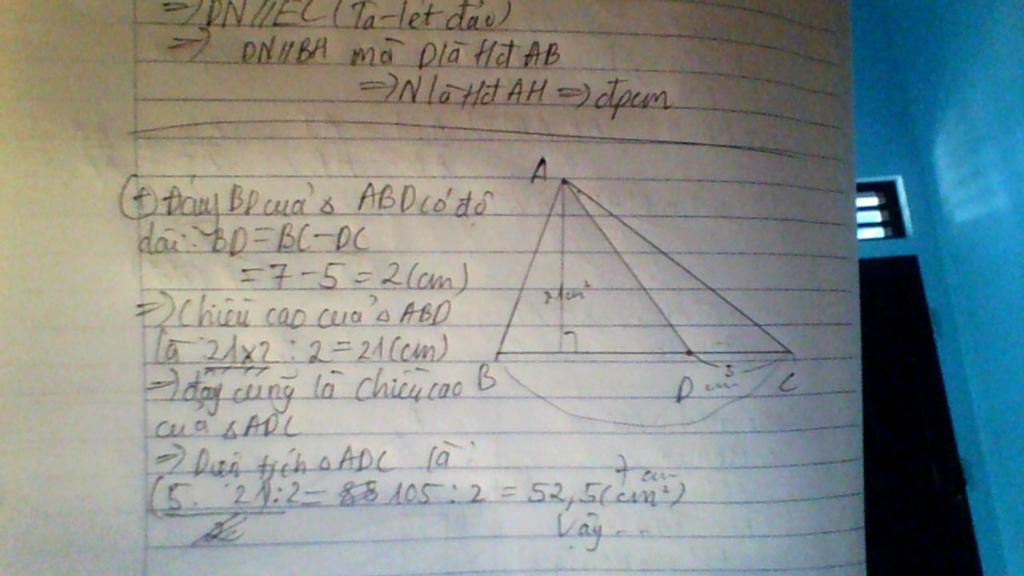 => DN // EC (Ta-lét đảo)
=> DN // BH mà D là tđ AB
=> N là tđ AH => đpcm
A
f) Đáy BD của Δ ABD có độ
dài: BD = BC - DC
= 7 - 5 = 2 (cm)
21cm²
=> Chiều cao của Δ ABD
là 21 x 2 : 2 = 21 (cm)
B D C
5
cm
=> đây cũng là chiều cao
của Δ ADC
=> Diện tích Δ ADC là:
7 cm
(5. 21) : 2 = 105 : 2 = 52,5 (cm²)
Vậy ...